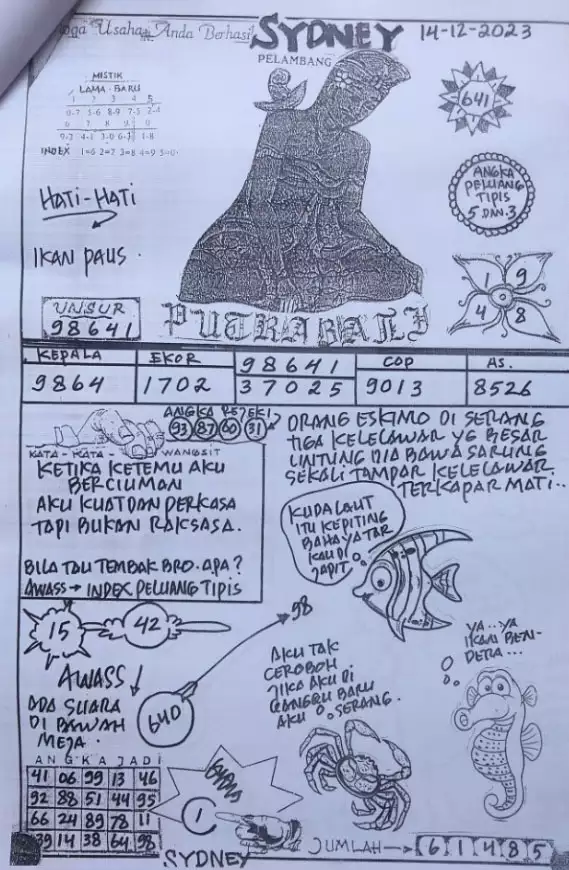 Usaha Anda Berhasi
SYDNEY
14-12-2023
PELAMBANG
MISTIK
LAMA - BARU
1 2 3 4 5
0-7 5-6 8-9 7-3 2-4
9-2 4-1 3-0 6- 1-8
INDEX 1=6 2=7 3=8 4=9 5=0
641
HATI-HATI
ANGKA
PELUANG
TIPIS
5 DAN 3
IKAN PAUS.
1 9
4 8
UNSUR
98641
PUTRA BALI
KEPALA EKOR 98641 COP AS.
9864 1702 37025 9013 8526
ANGKA REJEKI
93 87 60 31
KATA-KATA WANGSIT
KETIKA KETEMU AKU
BERCIUMAN
AKU KUAT DAN PERKASA
TAPI BUKAN RAKSASA.
BILA TAU TEMBAK BRO. APA?
AWASS → INDEX PELUANG TIPIS
ORANG ESKIMO DI SERANG
TIGA KELELAWAR YG BESAR
UNTUNG DIA BAWA SARUNG
SEKALI TAMPAR KELELAWAR
TERKAPAR MATI..
KUDA LAUT
ITU KEPITING
BAHAYA TAR
KAU DI
JAPIT.
15
42
98
AWASS
ADA SUARA
DI BAWAH
MEJA.
640
AKU TAK
CEROBOH
JIKA AKU DI
AKU SERANG.
YA..YA
IKAN BEN-
DERA...
ANGKA JADI
41 06 99 13 46
92 88 51 44 95
66 24 89 78 11
39 14 38 64 98
1
SYDNEY
JUMLAH → 6 1 4 8 5